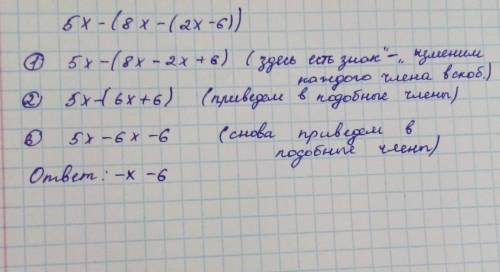 5x-(8x-(2x-6))
① 5x-(8x-2x+6) (здесь есть знак "-" изменим
каждого члена в скоб.)
② 5x-(6x+6) (приведем в подобные члены)
③ 5x-6x-6 (снова приведем в
подобные члены)
Ответ: -x-6